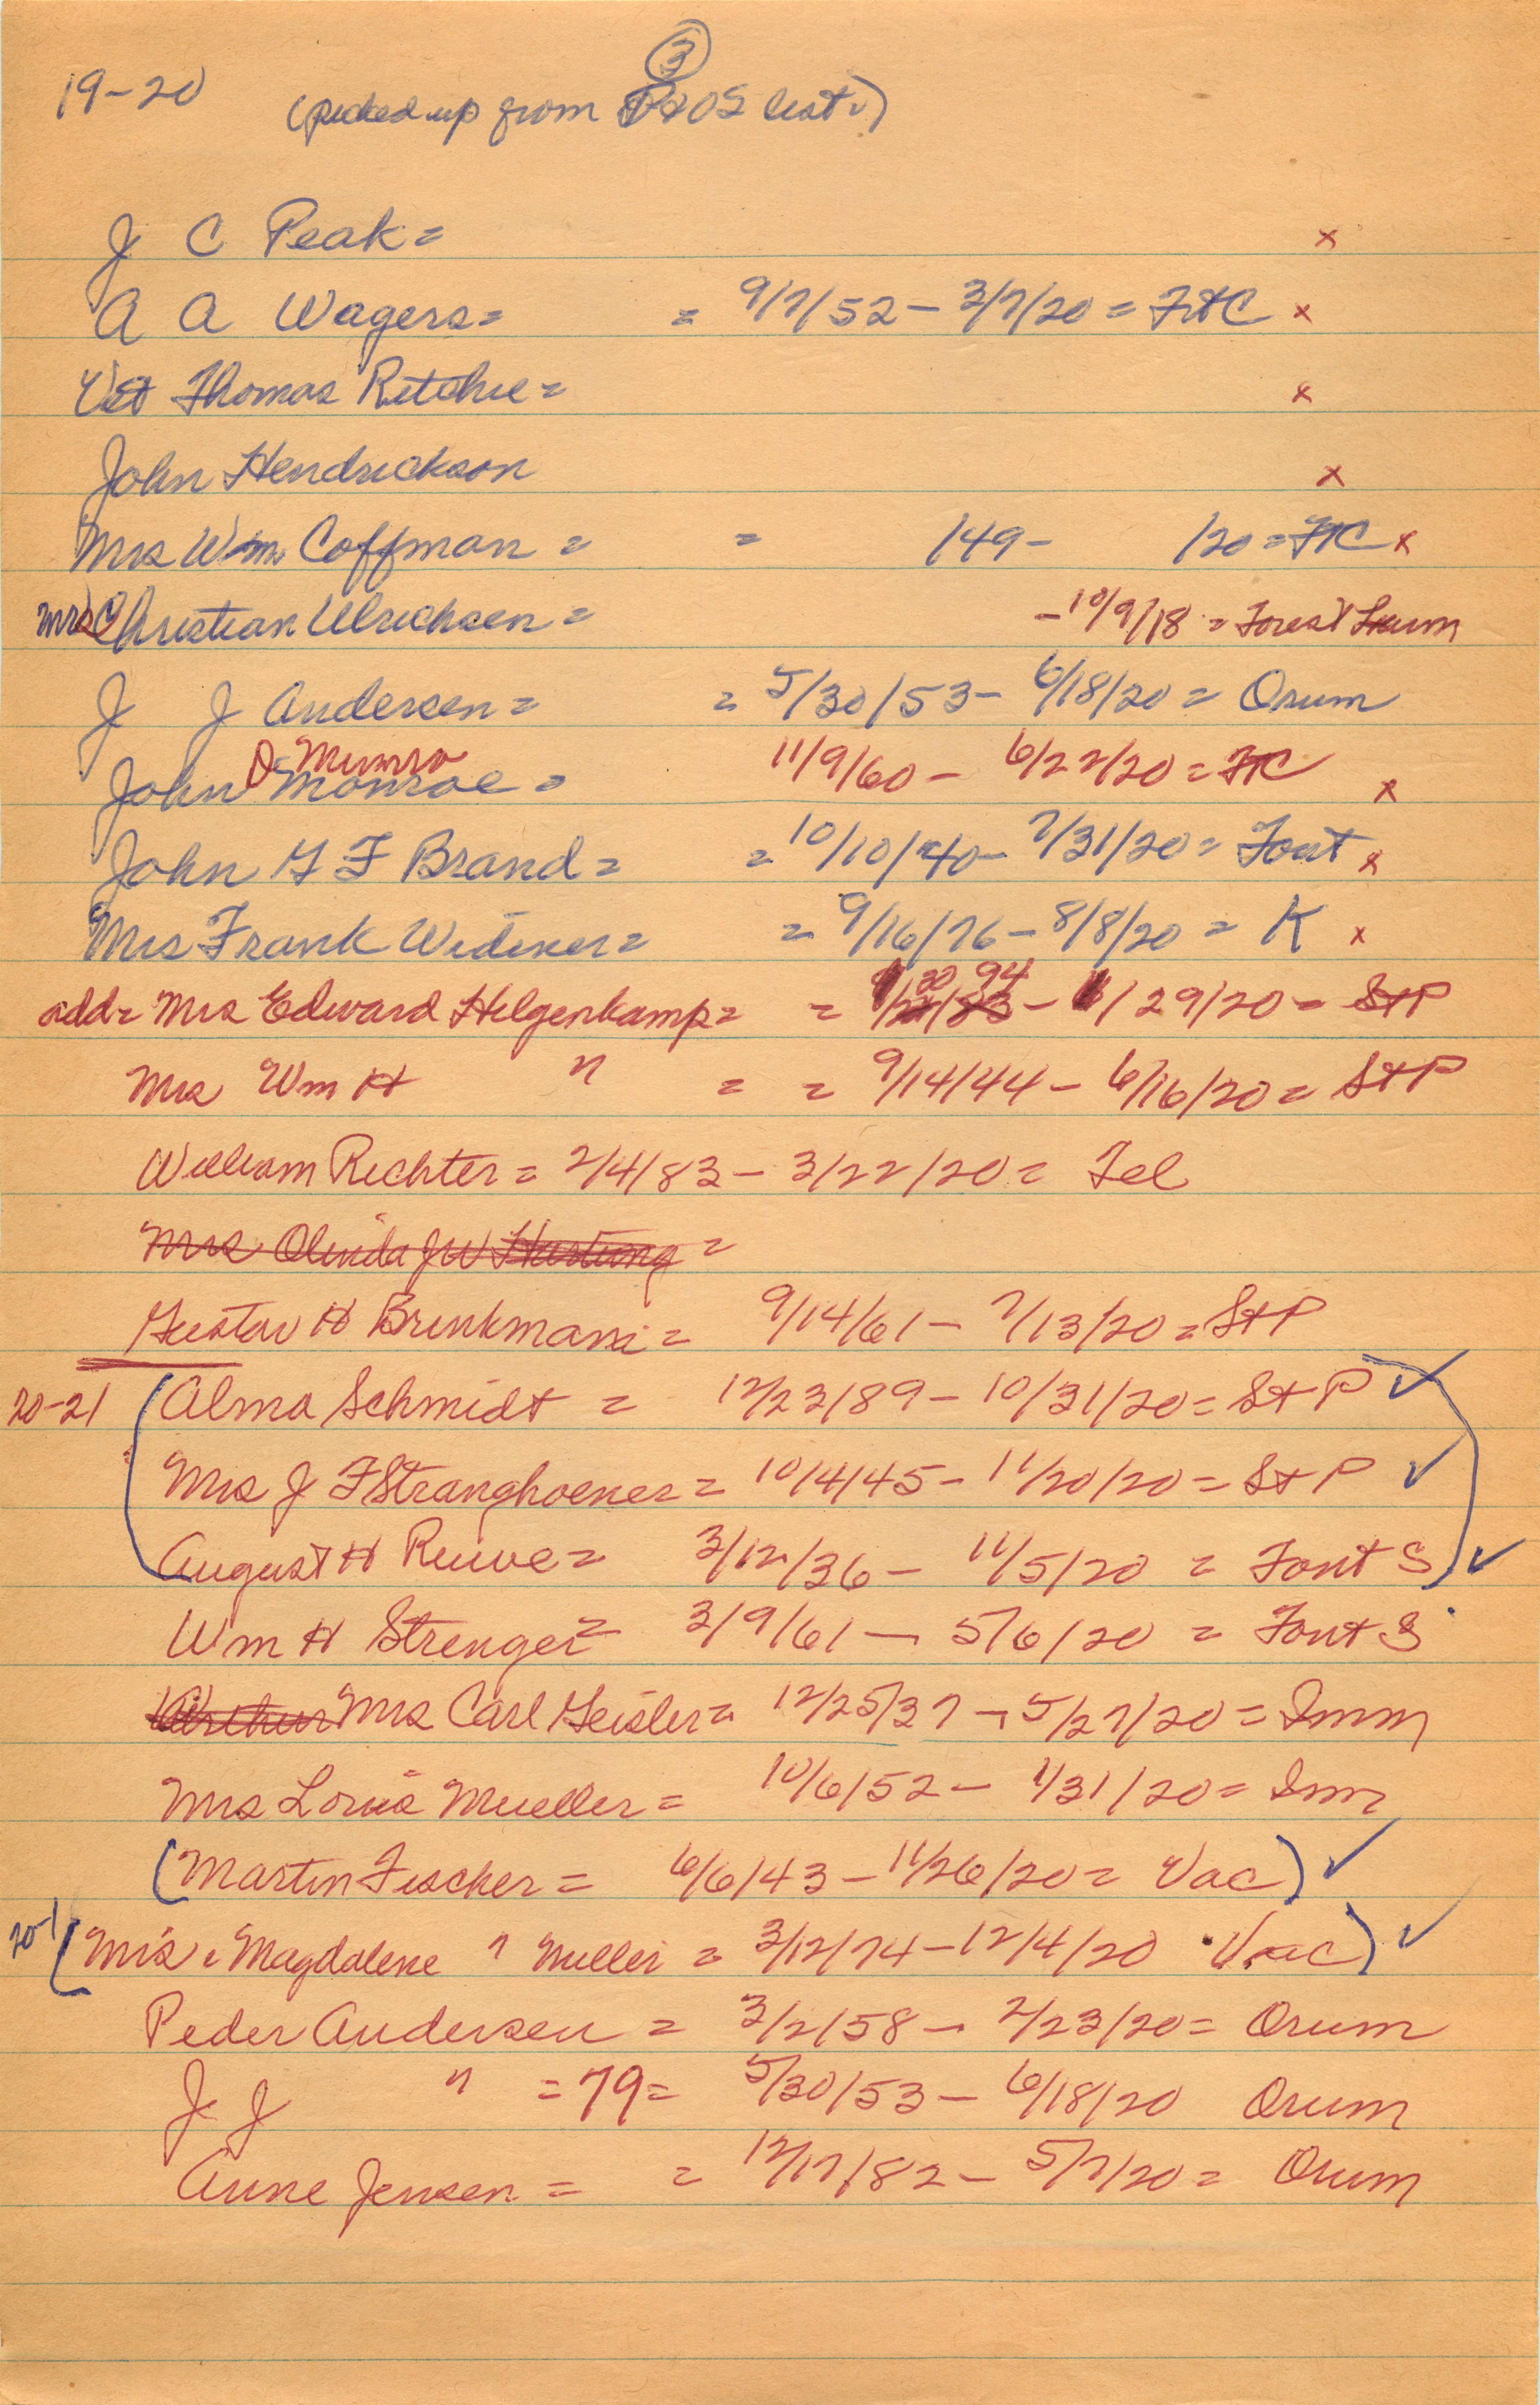 3
19-20 (picked up from OS list)
J C Peak = x
A A Wagers = = 9/7/52 - 3/7/20 = FtC x
Vet Thomas Ritchie = x
John Hendrickson x
Mrs Wm Coffman = = /49 - /20 = FtC x
Mrs Christian Ulrichsen = - 10/9/18 = Forest Lawn
J J Andersen = = 5/30/53 - 6/18/20 = Orum
D Munro
John Monroe = 11/9/60 - 6/22/20 = FtC x
John G F Brand = = 10/10/40 - 7/31/20 = Font x
Mrs Frank Widener = = 9/16/76 - 8/8/20 = K x
30 94
add = Mrs Edward Hilgenkamp = = /29/20 = St P
Mrs Wm H " = = 9/14/44 - 6/16/20 = St P
William Richter = 2/4/83 - 3/22/20 = Tel
Mrs Olinda JW Hartung =
Gustav H Brinkmann = 9/14/61 - 7/13/20 = St P
20-21 (Alma Schmidt = 12/23/89 - 10/31/20 = St P ✓
Mrs J F Stranghoener = 10/4/45 - 11/20/20 = St P ✓
August H Ruwe = 3/12/36 - 11/5/20 = Font S) ✓
Wm H Strenger = 3/9/61 - 5/6/20 = Font S
Arthur Mrs Carl Geisler = 12/25/37 - 5/27/20 = Imm
Mrs Louis Mueller = 10/6/52 - 1/31/20 = Imm
(Martin Fischer = 6/6/43 - 11/26/20 = Vac) ✓
20-1 (Mrs Magdalene Miller = 3/12/74 - 12/4/20 Vac) ✓
Peder Andersen = 3/2/58 - 2/23/20 = Orum
J J " = 79 = 5/30/53 - 6/18/20 Orum
Anne Jensen = = 12/17/82 - 5/7/20 = Orum